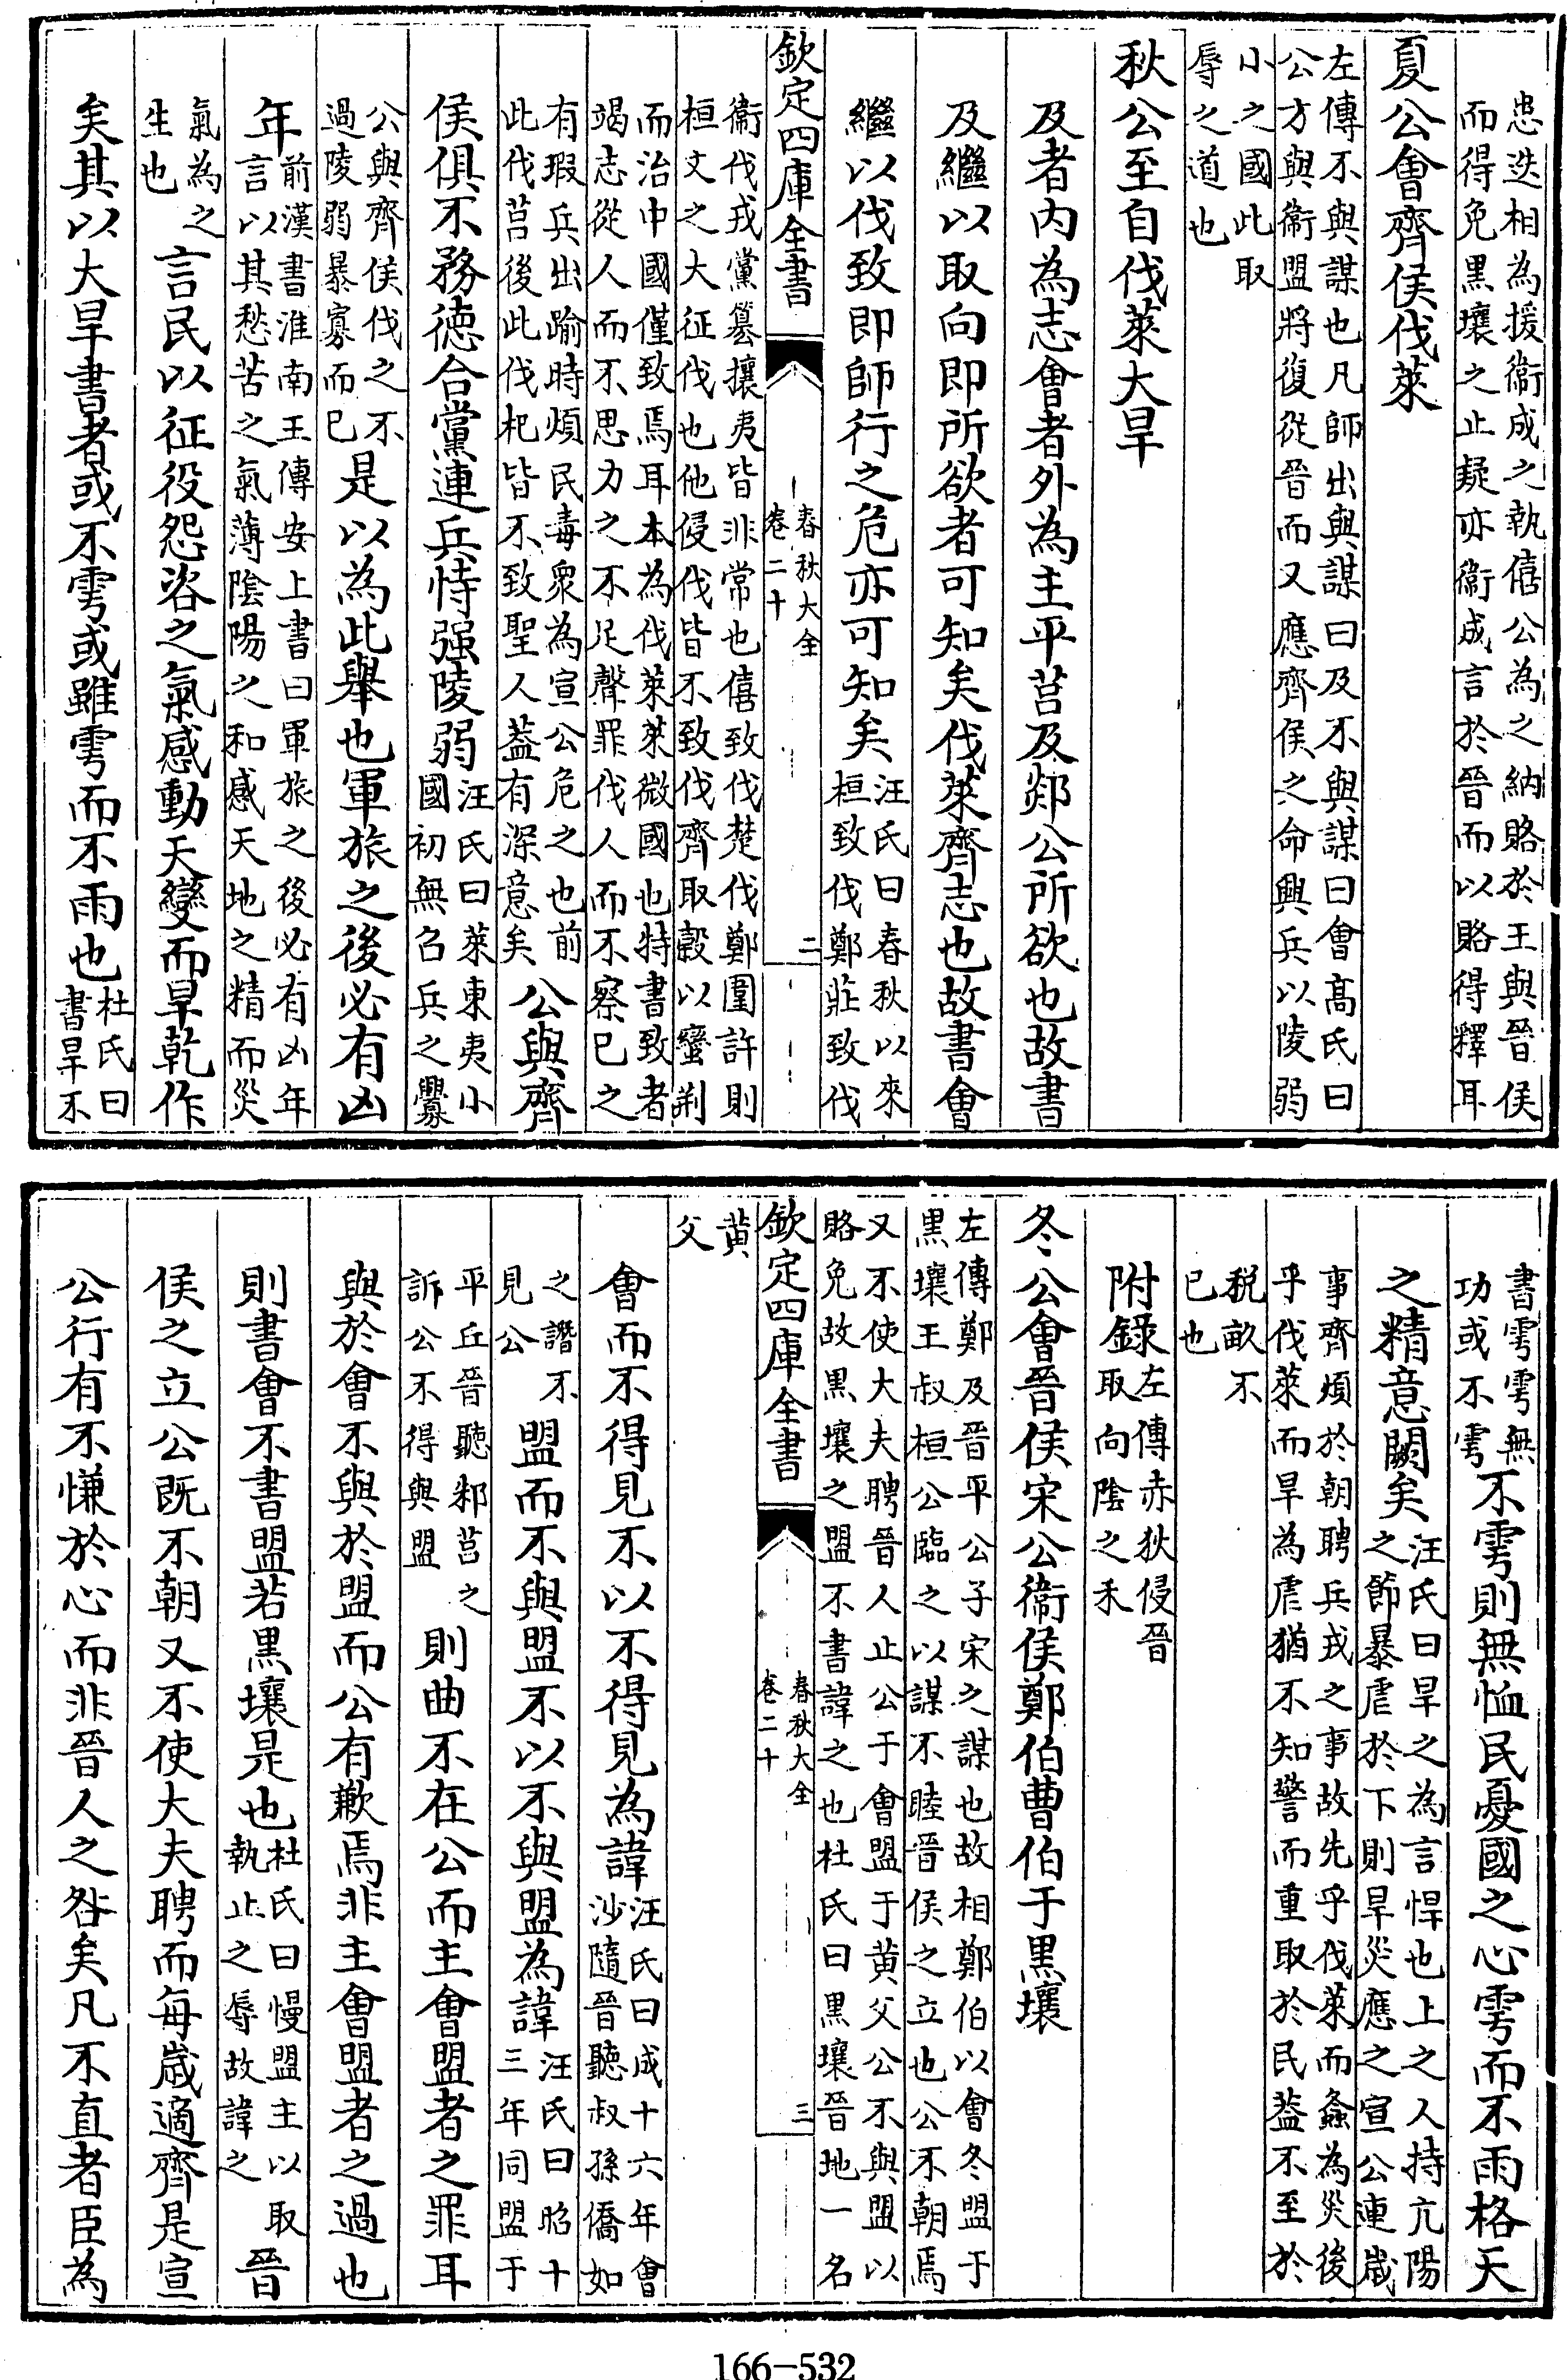 患迭相為援衞成之執僖公為之納賂於王與晉侯
而得免黑壤之止疑亦衞成言於晉而以賂得釋耳
夏公會齊侯伐萊
左傳不與謀也凡師出與謀曰及不與謀曰會髙氏曰
公方與衞盟將復從晉而又應齊侯之命興兵以陵弱
小之國此取
辱之道也
秋公至自伐萊大旱
及者内為志會者外為主平莒及郯公所欲也故書
及繼以取向即所欲者可知矣伐萊齊志也故書會
繼以伐致即師行之危亦可知矣
汪氏曰春秋以來
桓致伐鄭莊致伐
欽定四庫全書
春秋大全
卷二十
二
衞伐戎黨簒攘夷皆非常也僖致伐楚伐鄭圍許則
桓文之大征伐也他侵伐皆不致伐齊取穀以蠻荆
而治中國僅致焉耳本為伐萊萊微國也特書致者
竭志從人而不思力之不足聲罪伐人而不察已之
有瑕兵出踰時煩民毒衆為宣公危之也前
此伐莒後此伐杞皆不致聖人蓋有深意矣
公與齊
侯俱不務徳合黨連兵恃强陵弱
汪氏曰萊東夷小
國初無召兵之釁
公與齊侯伐之不
過陵弱暴寡而已
是以為此舉也軍旅之後必有凶
年
前漢書淮南王傳安上書曰軍旅之後必有凶年
言以其愁苦之氣薄陰陽之和感天地之精而災
氣為之
生也
言民以征役怨咨之氣感動天變而旱乾作
矣其以大旱書者或不雩或雖雩而不雨也
杜氏曰
書旱不
書雩雩無
功或不雩
不雩則無恤民憂國之心雩而不雨格天
之精意闕矣
汪氏曰旱之為言悍也上之人持亢陽
之節暴虐於下則旱災應之宣公連嵗
事齊煩於朝聘兵戎之事故先乎伐萊而螽為災後
乎伐萊而旱為虐猶不知警而重取於民蓋不至於
税畝不
已也
附錄
左傳赤狄侵晉
取向陰之禾
冬公會晉侯宋公衞侯鄭伯曹伯于黑壤
左傳鄭及晉平公子宋之謀也故相鄭伯以會冬盟于
黑壤王叔桓公臨之以謀不睦晉侯之立也公不朝焉
又不使大夫聘晉人止公于會盟于黄父公不與盟以
賂免故黑壤之盟不書諱之也杜氏曰黑壤晉地一名
欽定四庫全書
春秋大全
卷二十
三
黄
父
會而不得見不以不得見為諱
汪氏曰成十六年會
沙隨晉聽叔孫僑如
之譖不
見公
盟而不與盟不以不與盟為諱
汪氏曰昭十
三年同盟于
平丘晉聽邾莒之
訴公不得與盟
則曲不在公而主會盟者之罪耳
與於會不與於盟而公有歉焉非主會盟者之過也
則書會不書盟若黑壤是也
杜氏曰慢盟主以取
執止之辱故諱之
晉
侯之立公既不朝又不使大夫聘而每嵗適齊是宣
公行有不慊於心而非晉人之咎矣凡不直者臣為
166-532